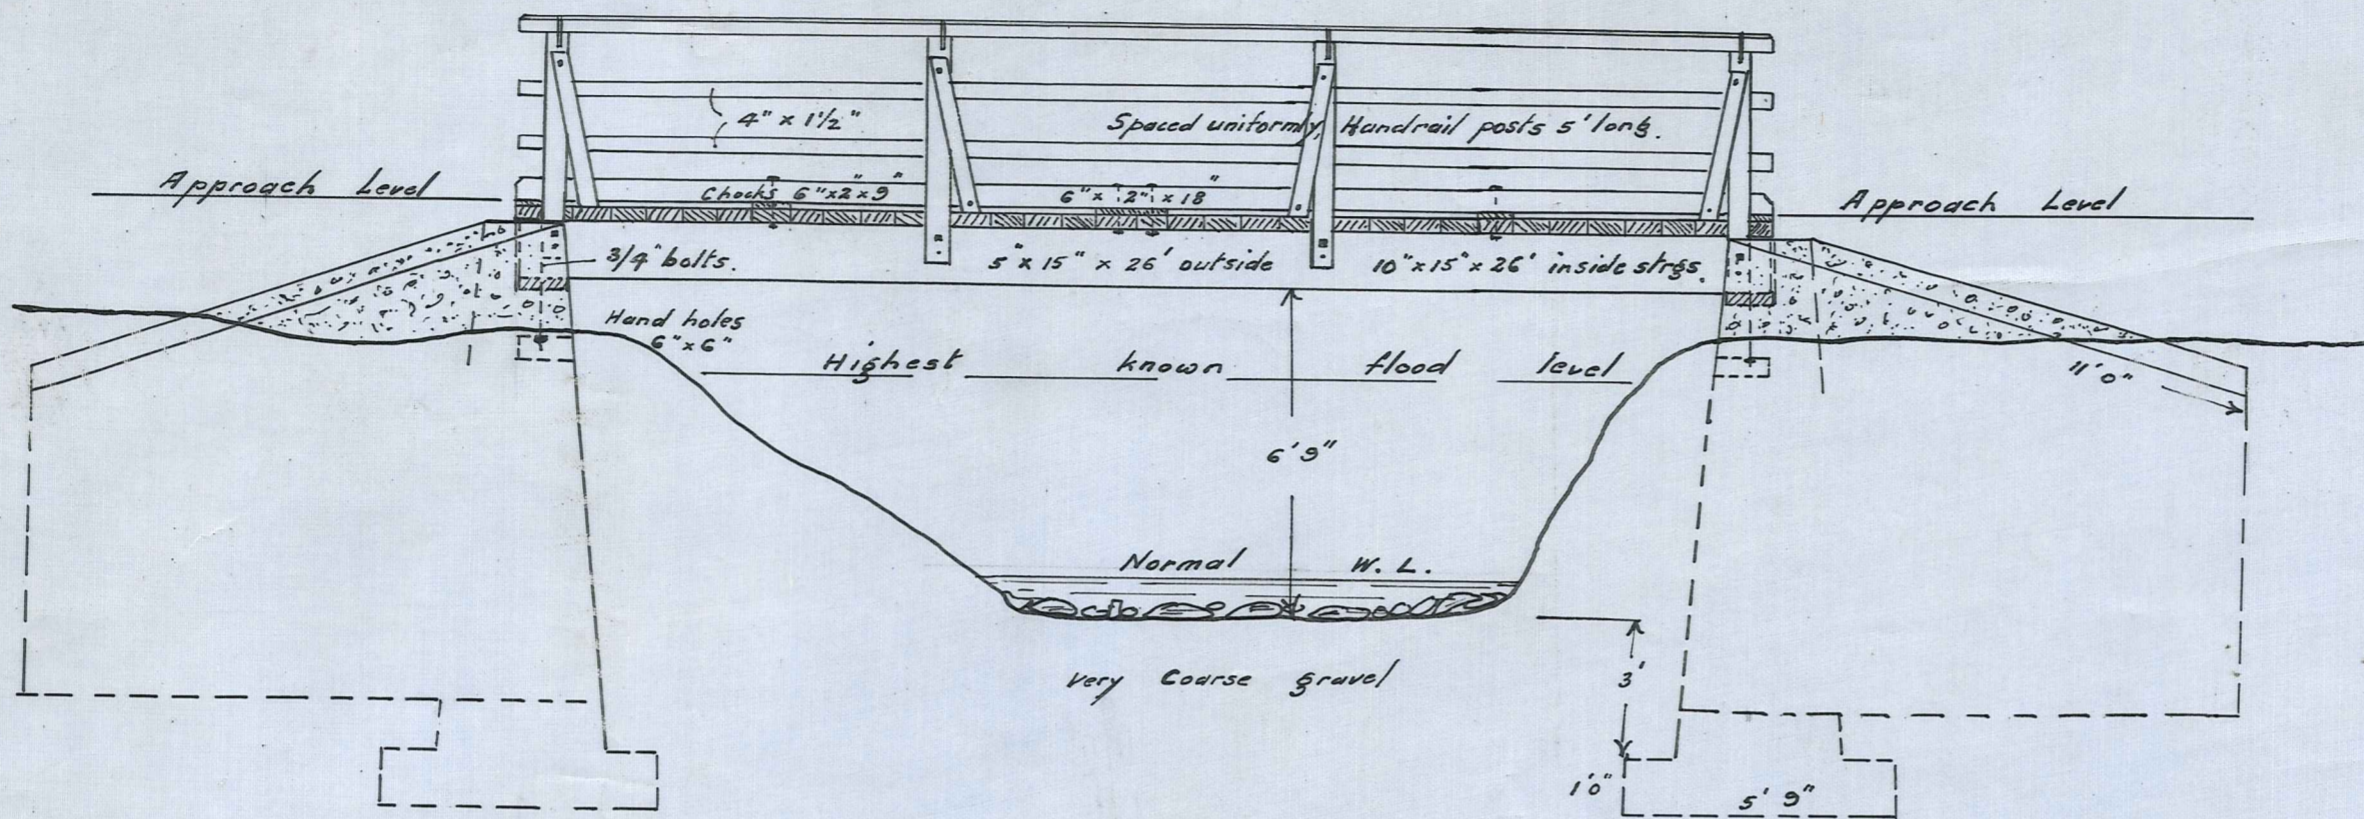 4" x 1½"
Spaced uniformly, Handrail posts 5' long.
Approach Level
Chocks 6"x2"x9"
6" x 2" x 18"
Approach Level
3/4" bolts.
5" x 15" x 26' outside
10" x 15" x 26' inside strgs.
Hand holes
6" x 6"
Highest known flood level
11'0"
6'9"
Normal W. L.
Very Coarse gravel
3'
1'0"
5' 9"